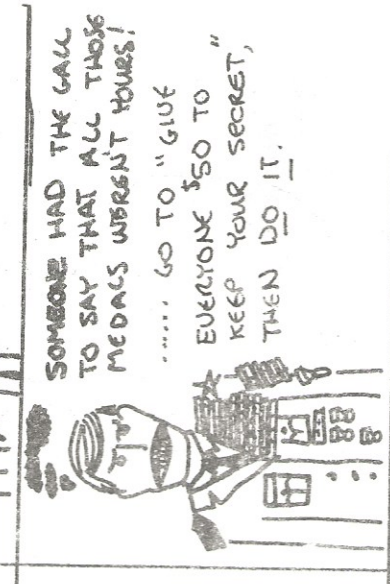 SOMEONE HAD THE GALL
TO SAY THAT ALL THOSE
MEDALS WEREN'T YOURS!
...... GO TO "GIVE
EVERYONE $50 TO
KEEP YOUR SECRET,"
THEN DO IT.